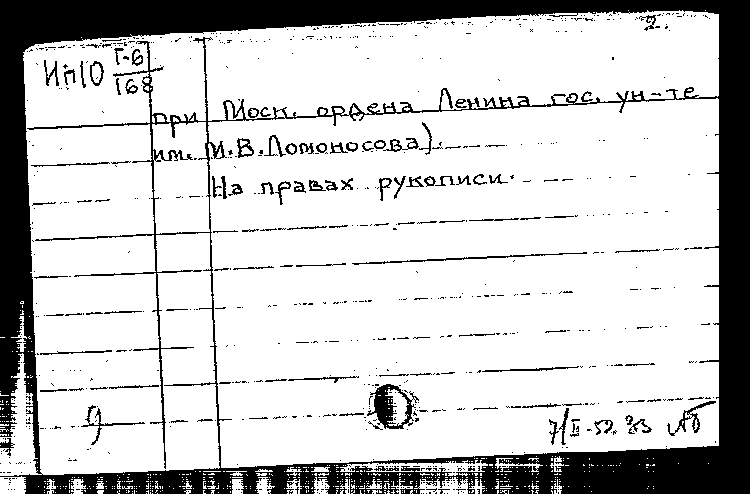 2.
Ип10 I-6/168
при Моск. ордена Ленина гос. ун-те
им. М.В.Ломоносова).
На правах рукописи.
9
7/II-52. 33